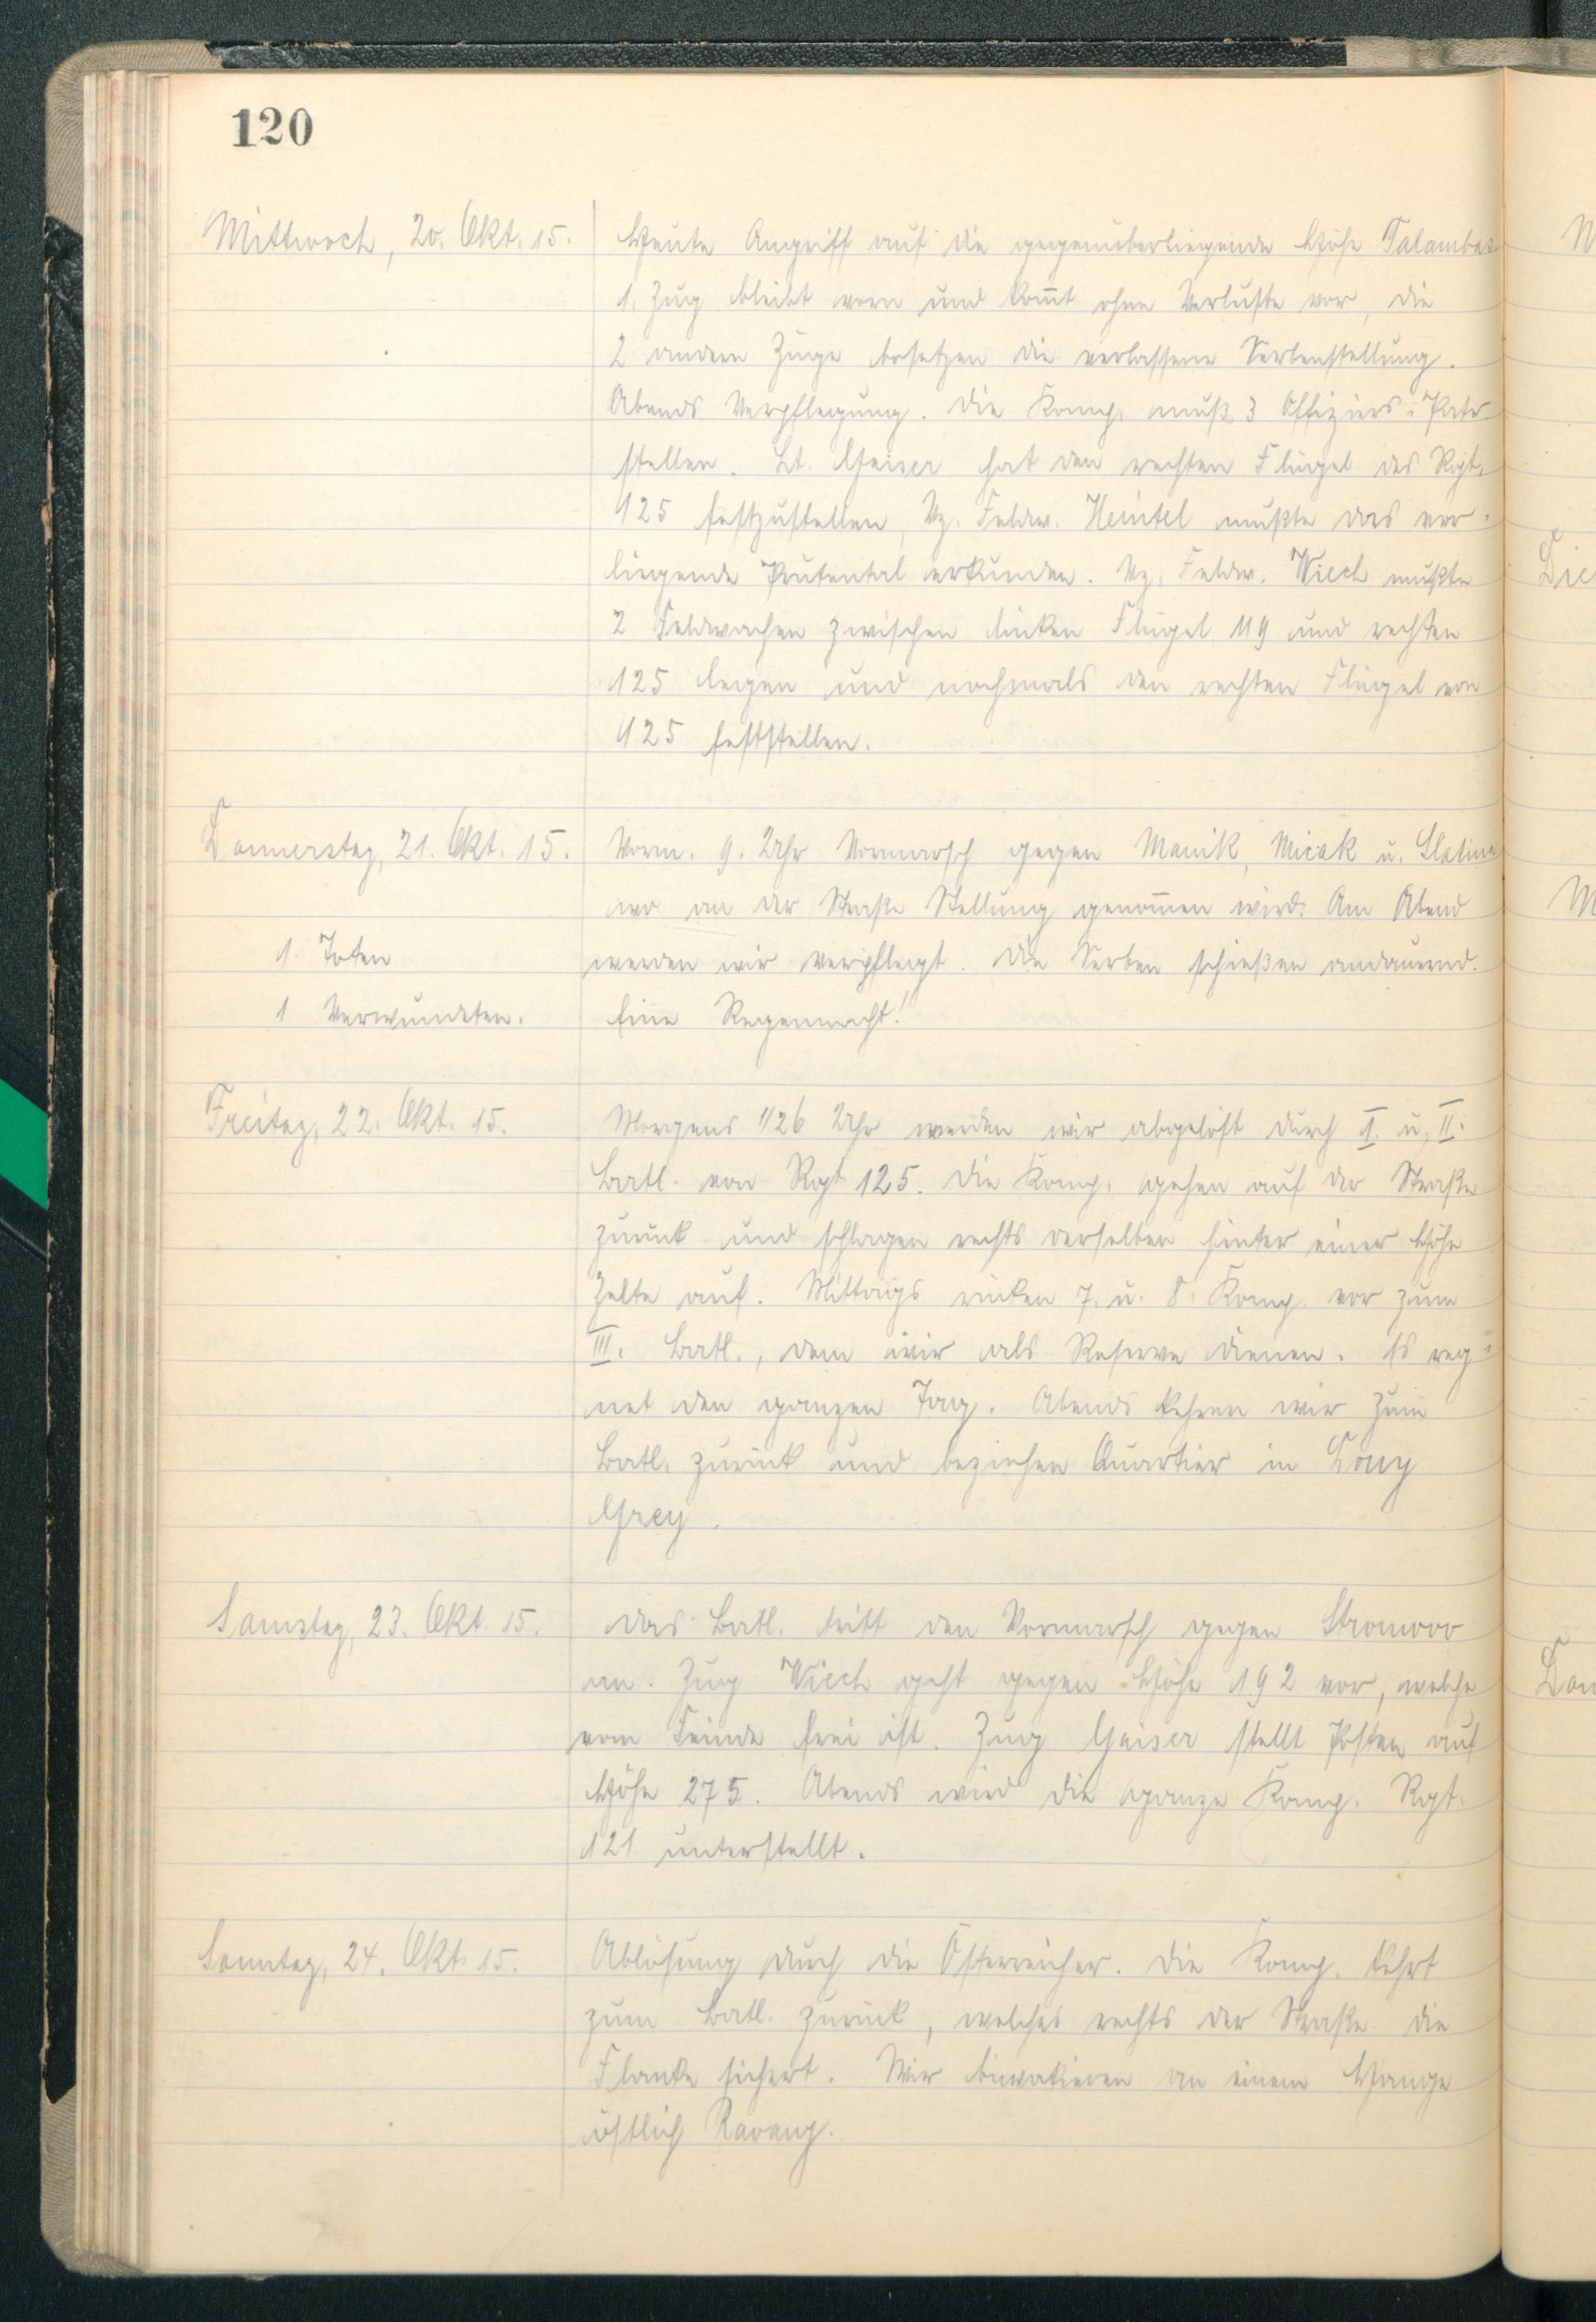 120
Mittwoch, 20. Okt. 15.
Heute Angriff auf die gegenüberliegende Höhe Talambas
1. Zug bleibt vorn und kom̅t ohne Verluste vor, die
2 andern Züge besetzen die verlassene Serbenstellung.
Abends Verpflegung. Die Komp. muß 3 Offiziers-Patr.
stellen. Lt. Gaiser hat den rechten Flügel des Rgt.
125 festzustellen, Vz. Feldw. Heintel mußte das vor-
liegende erkunden. Vz. Feldw. Wiech mußte
2 Feldwachen zwischen linken Flügel 119 und rechten
125 legen und nochmals den rechten Flügel von
125 feststellen.
Donnerstag, 21. Okt. 15.
Vorm. 9. Uhr Vormarsch gegen Manik, Micak u. Slatina
wo an der Straße Stellung genom̅en wird. Am Abend
1. Toten
werden wir verpflegt. Die Serben schießen andauernd.
1 Verwundeten.
Eine Regennacht!
Freitag, 22. Okt. 15.
Morgens 1/26 Uhr werden wir abgelöst durch I. u. II.
Batl. von Rgt. 125. Die Komp. gehen auf der Straße
zurück und schlagen rechts derselben hinter einer Höhe
Zelte auf. Mittags rücken 7. u. 8. Komp. vor zum
III. Batl., dem wir als Reserve dienen. Es reg-
net den ganzen Tag. Abends kehren wir zum
Batl. zurück und beziehen Quartier in Dong
Grey.
Samstag, 23. Okt. 15.
Das Batl. tritt den Vormarsch gegen Stromovo
an. Zug Wiech geht gegen Höhe 192 vor, welche
vom Feinde frei ist. Zug Gaiser stellt Posten auf
Höhe 275. Abends wird die ganze Komp. Rgt.
121 unterstellt.
Sonntag, 24. Okt. 15.
Ablösung durch die Österreicher. Die Komp. kehrt
zum Batl. zurück, welches rechts der Straße die
Flanke sichert. Wir biwakieren an einem Hange
östlich Ravang.